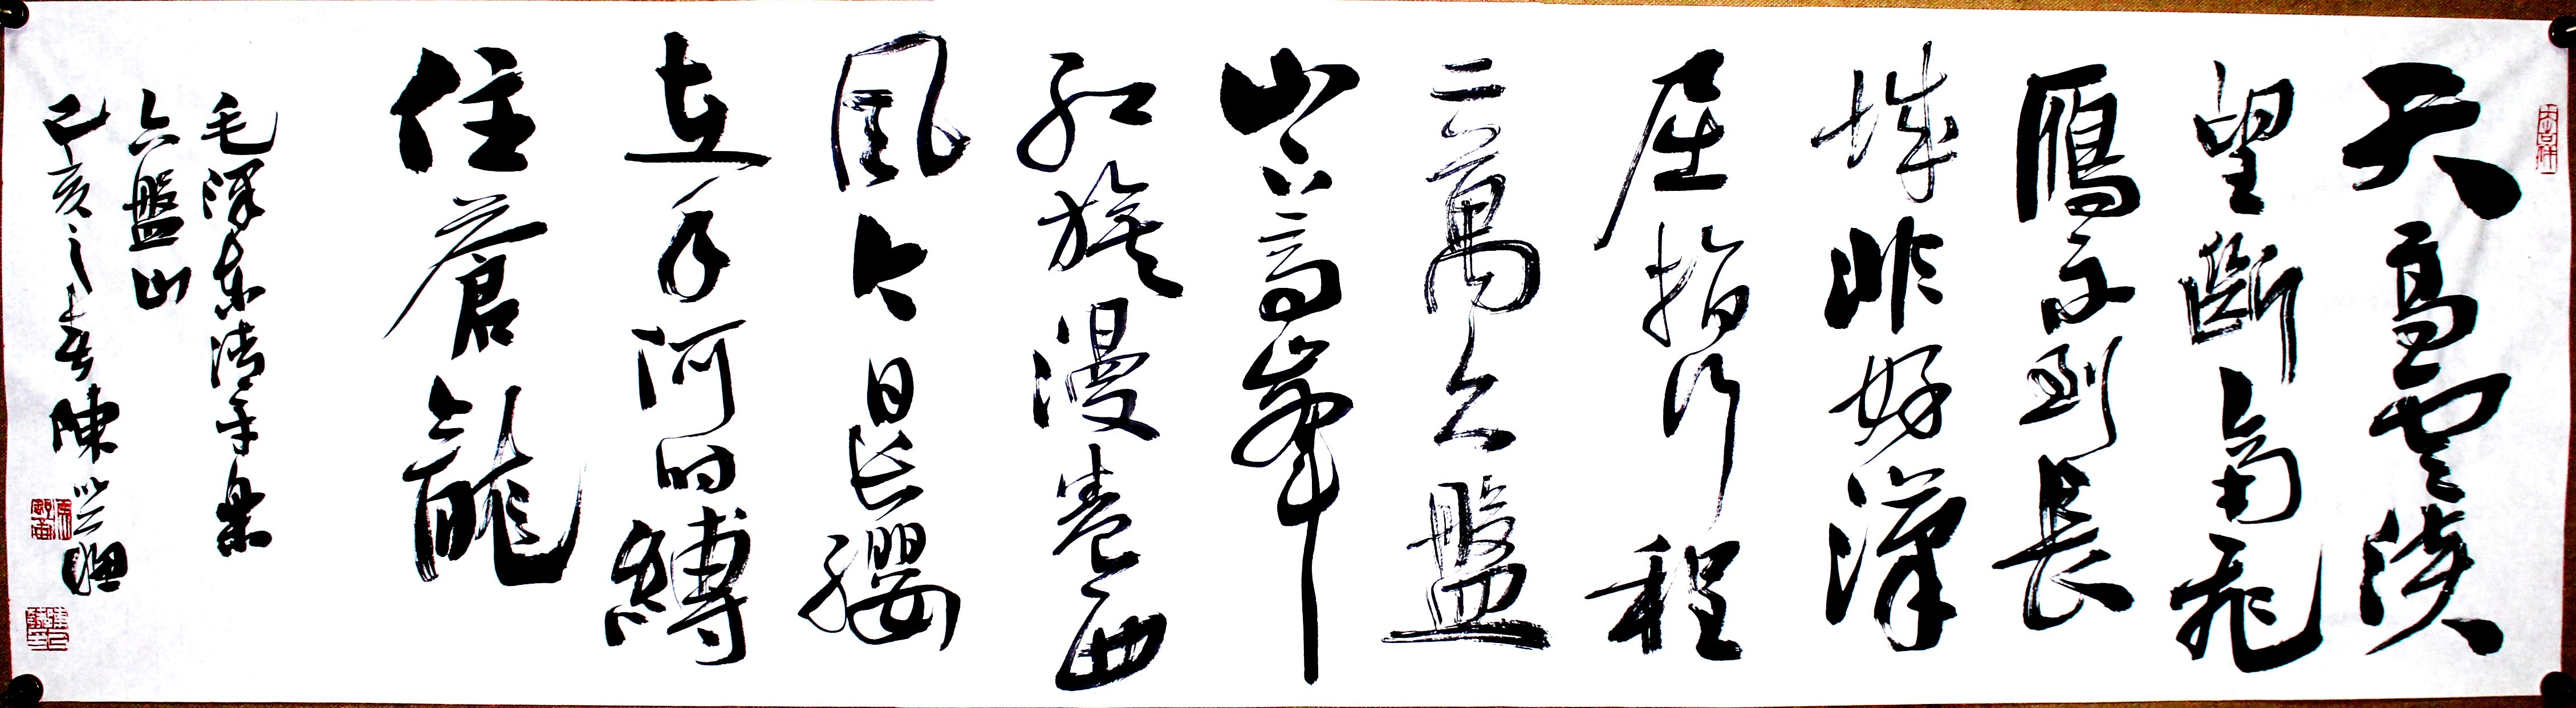 天高雲淡
望斷南飛
鴈不到長
城非好漢
屈指行程
二萬六盤
山上高峯
紅旗漫卷西
風今日長纓
在手何時縛
住蒼龍
毛澤東清平樂
六盤山
己亥之春陳